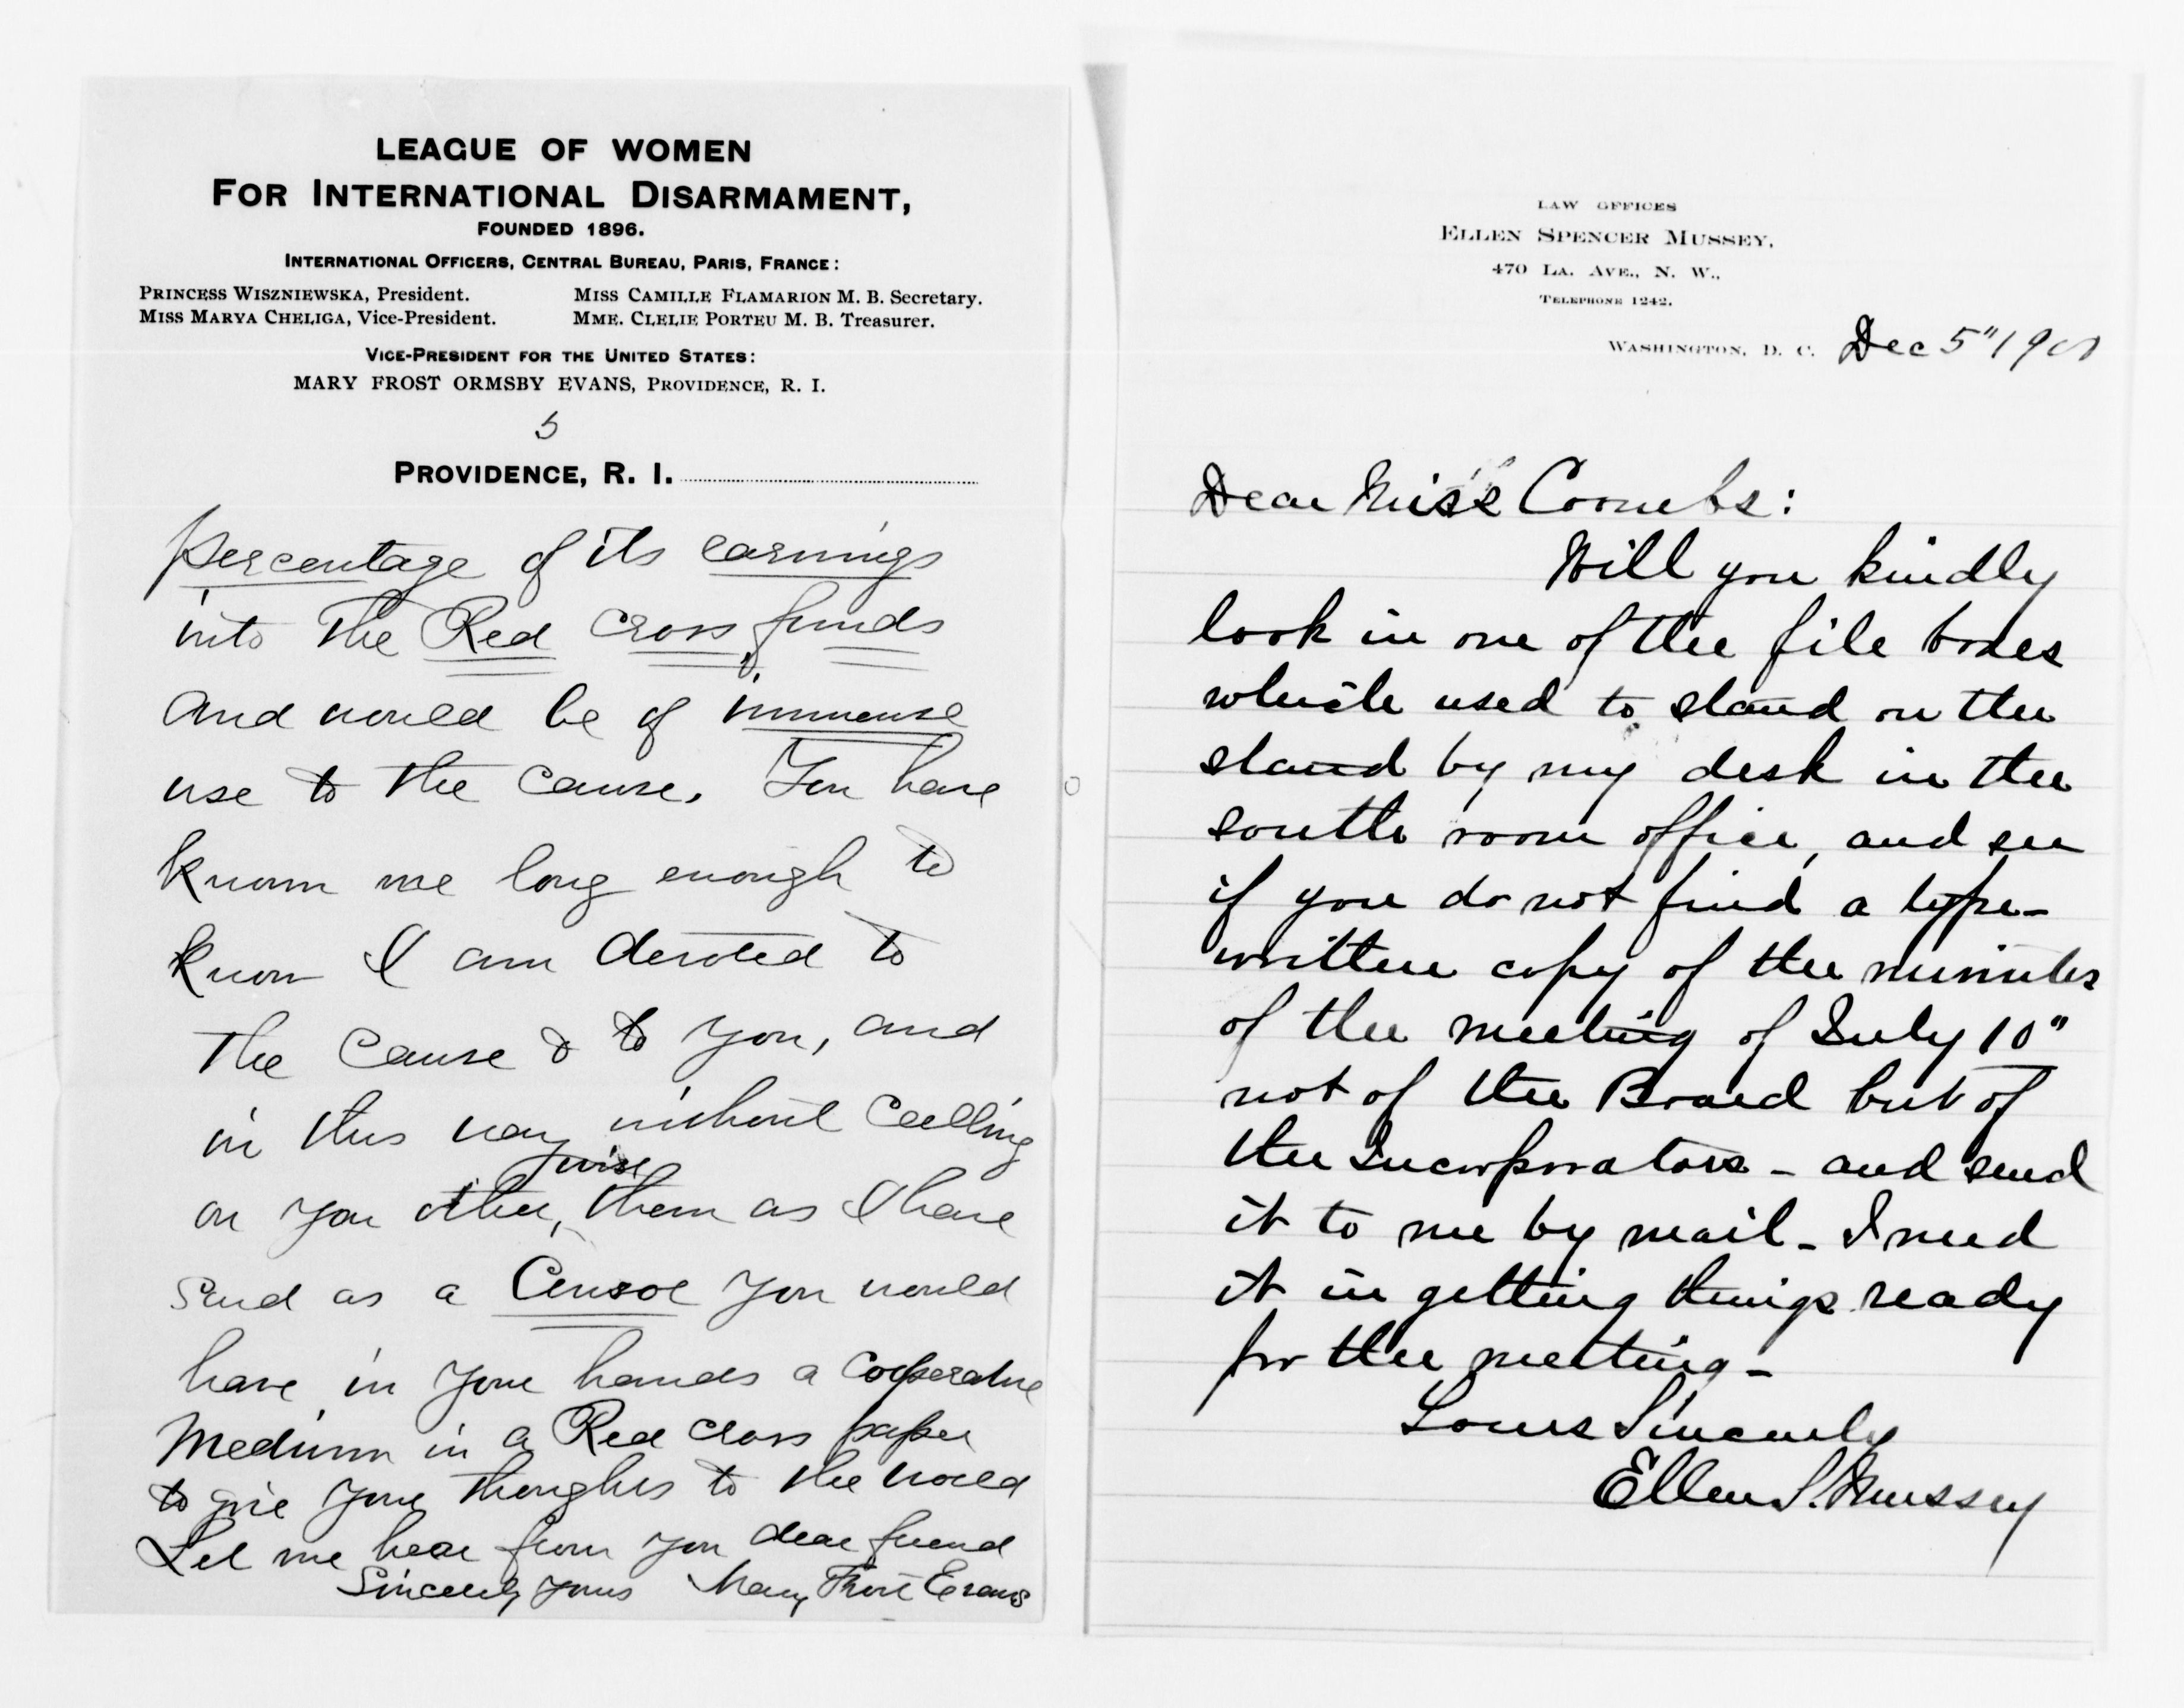 LEAGUE OF WOMEN
FOR INTERNATIONAL DISARMAMENT,
FOUNDED 1896.
INTERNATIONAL OFFICERS, CENTRAL BUREAU, PARIS, FRANCE:
PRINCESS WISZNIEWSKA, President.
MISS MARYA CHELIGA, Vice-President.
MISS CAMILLE FLAMARION M. B. Secretary.
MME. CLELIE PORTEU M. B. Treasurer.
VICE-PRESIDENT FOR THE UNITED STATES:
MARY FROST ORMSBY EVANS, PROVIDENCE, R. I.
5
PROVIDENCE, R. I.
percentage of its earnings
into the Red Cross funds
and would be of immense
use to the cause. You have
known me long enough to
know I am devoted to
the cause & to you, and
in this way without calling
wise
on you other, them as I have
said as a Censor you would
have in your hands a cooperative
Medium in a Red Cross paper
to give your thoughts to the world
Let me hear from you dear friend
Sincerely yours Mary Frost Evans
LAW OFFICES
ELLEN SPENCER MUSSEY,
470 LA. AVE., N. W.,
TELEPHONE 1242.
WASHINGTON, D. C. Dec 5"
Dear Miss Coombs:
Will you kindly
look in one of the file boxes
which used to stand on the
stand by my desk in the
south room office, and see
if you do not find a type-
written copy of the minutes
of the meeting of July 10"
not of the Board but of
the Incorporators - and send
it to me by mail - I need
it in getting things ready
for the meeting -
Yours Sincerely
Ellen S. Mussey